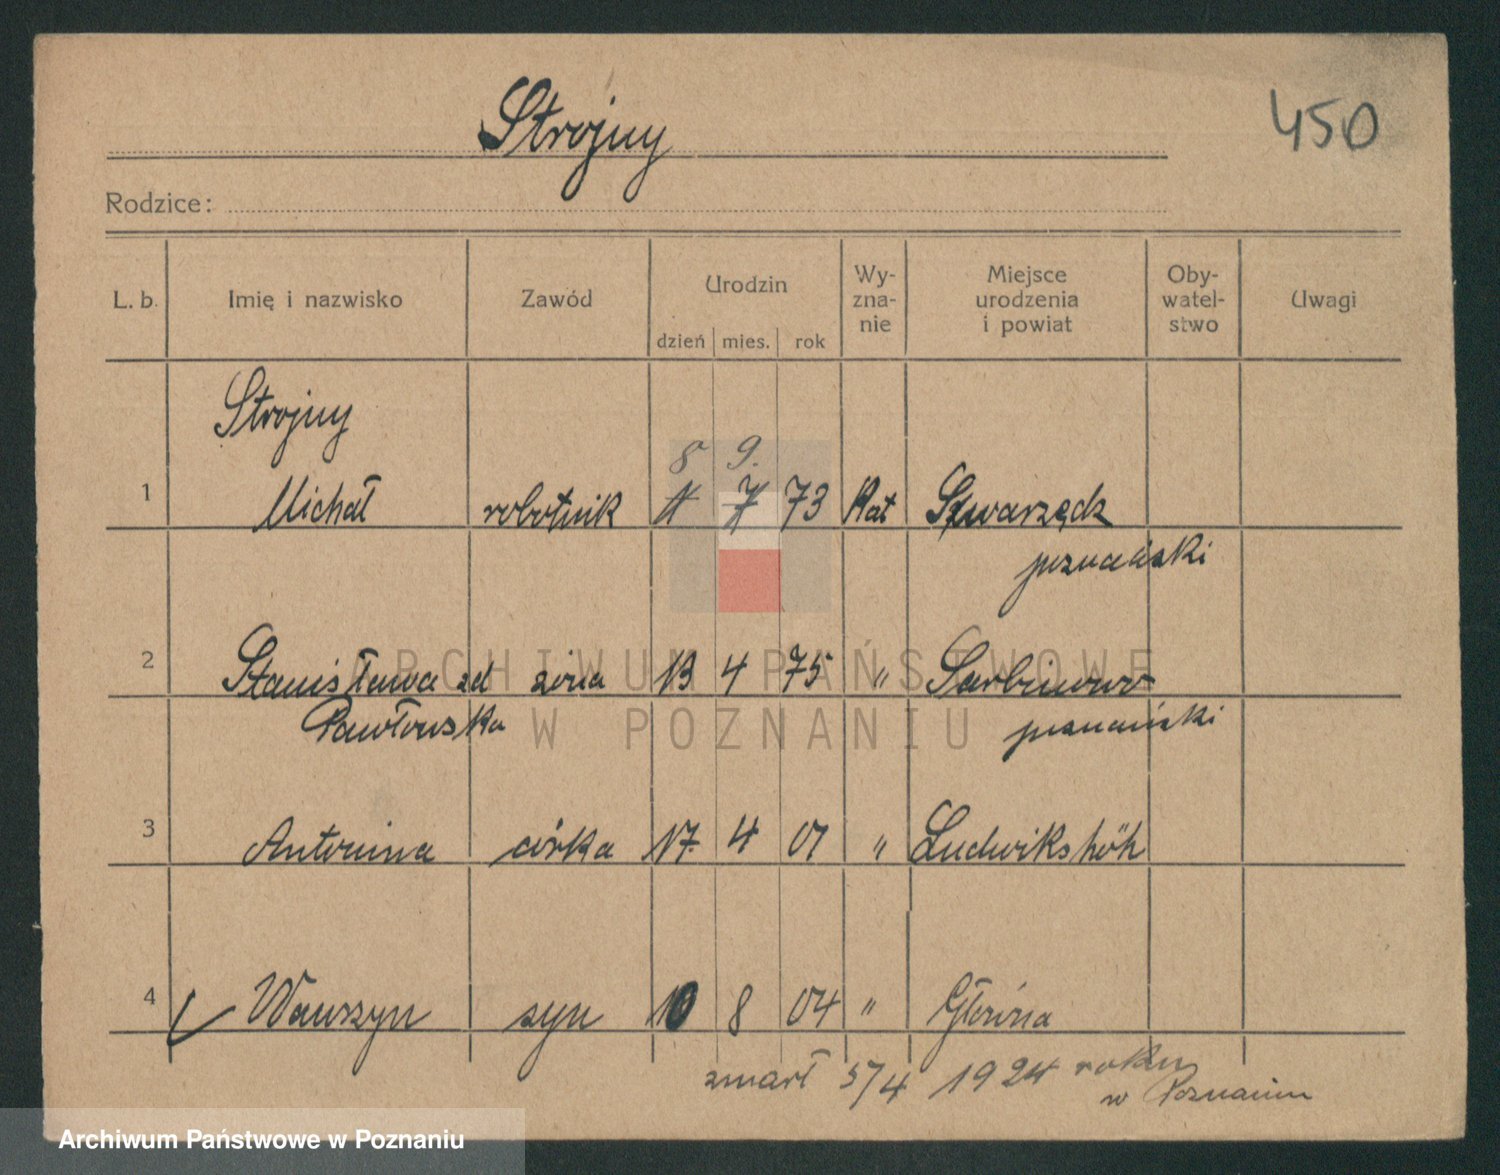 Strojny
450
Rodzice:
L. b.
Imię i nazwisko
Zawód
Urodzin
dzień
mies.
rok
Wy-
zna-
nie
Miejsce
urodzenia
i powiat
Oby-
watel-
stwo
Uwagi
Strojny
8 9.
1 Michał robotnik 11 7 73 Kat Szwarzędz
poznański
2 Stanisława zd żona 13 4 75 " Sarbinowo
Pawłowska poznański
3 Antonina córka 17. 4 01 " Ludwikshöh
4 Wawrzyn syn 10 8 04 " Główna
zmarł 5/4 1924 roku
w Poznaniu
ARCHIWUM PAŃSTWOWE
W POZNANIU
Archiwum Państwowe w Poznaniu